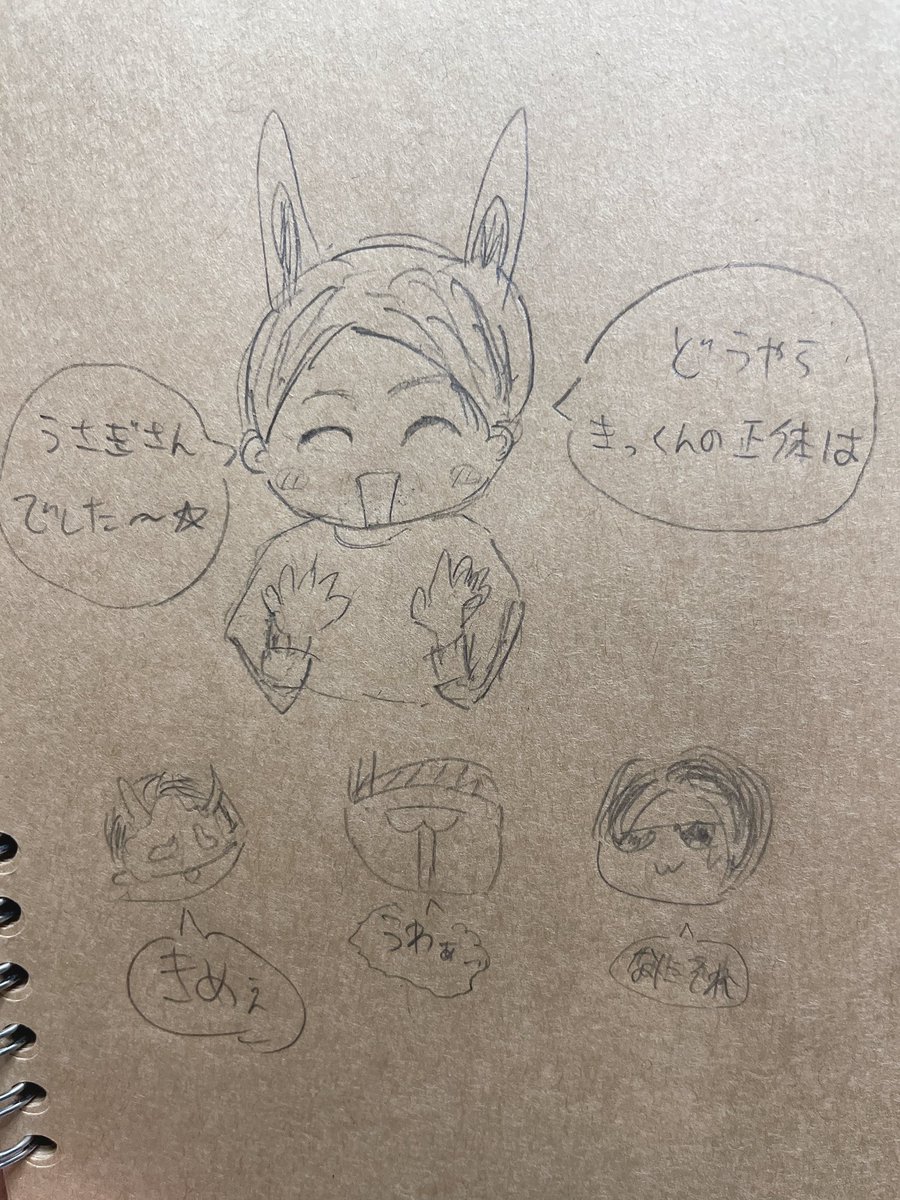 どうやら
きっくんの正体は
うさぎさん
でした〜☆
きめぇ
うわぁっ
なにそれ